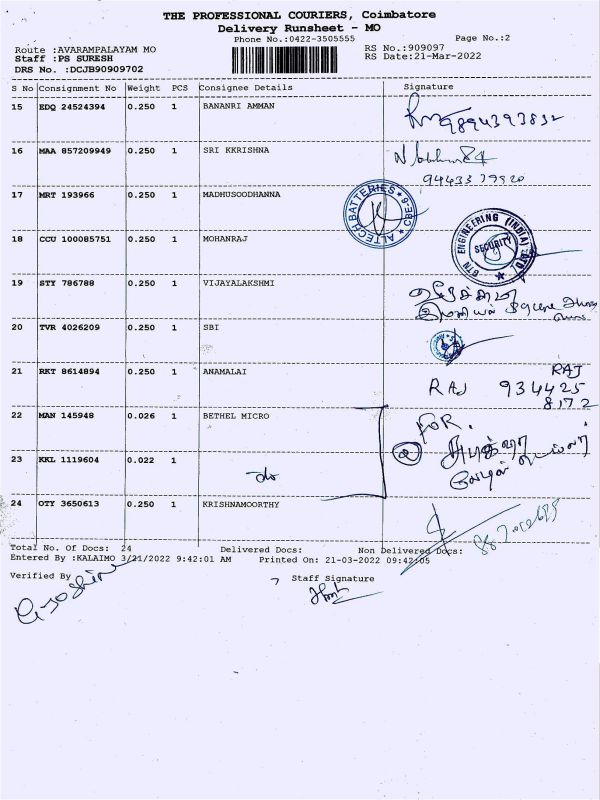 THE PROFESSIONAL COURIERS, Coimbatore
Delivery Runsheet - MO
Phone No.:0422-3505555
Page No.:2
Route :AVARAMPALAYAM MO
RS No.:909097
Staff :PS SURESH
RS Date:21-Mar-2022
DRS No. :DCJB90909702
S No Consignment No Weight PCS Consignee Details Signature
15 EDQ 24524394 0.250 1 BANANRI AMMAN 9894393832
16 MAA 857209949 0.250 1 SRI KKRISHNA
17 MRT 193966 0.250 1 MADHUSOODHANNA ALTECH BATTERIES CBE-6
18 CCU 100085751 0.250 1 MOHANRAJ GTN ENGINEERING (INDIA) LTD SECURITY
19 STY 786788 0.250 1 VIJAYALAKSHMI
20 TVR 4026209 0.250 1 SBI
21 RKT 8614894 0.250 1 ANAMALAI RAJ
RAJ 934425
8172
22 MAN 145948 0.026 1 BETHEL MICRO FOR.
23 KKL 1119604 0.022 1 do
24 OTY 3650613 0.250 1 KRISHNAMOORTHY
Total No. Of Docs: 24 Delivered Docs: Non Delivered Docs:
Entered By :KALAIMO 3/21/2022 9:42:01 AM Printed On: 21-03-2022 09:42:05
Verified By Staff Signature